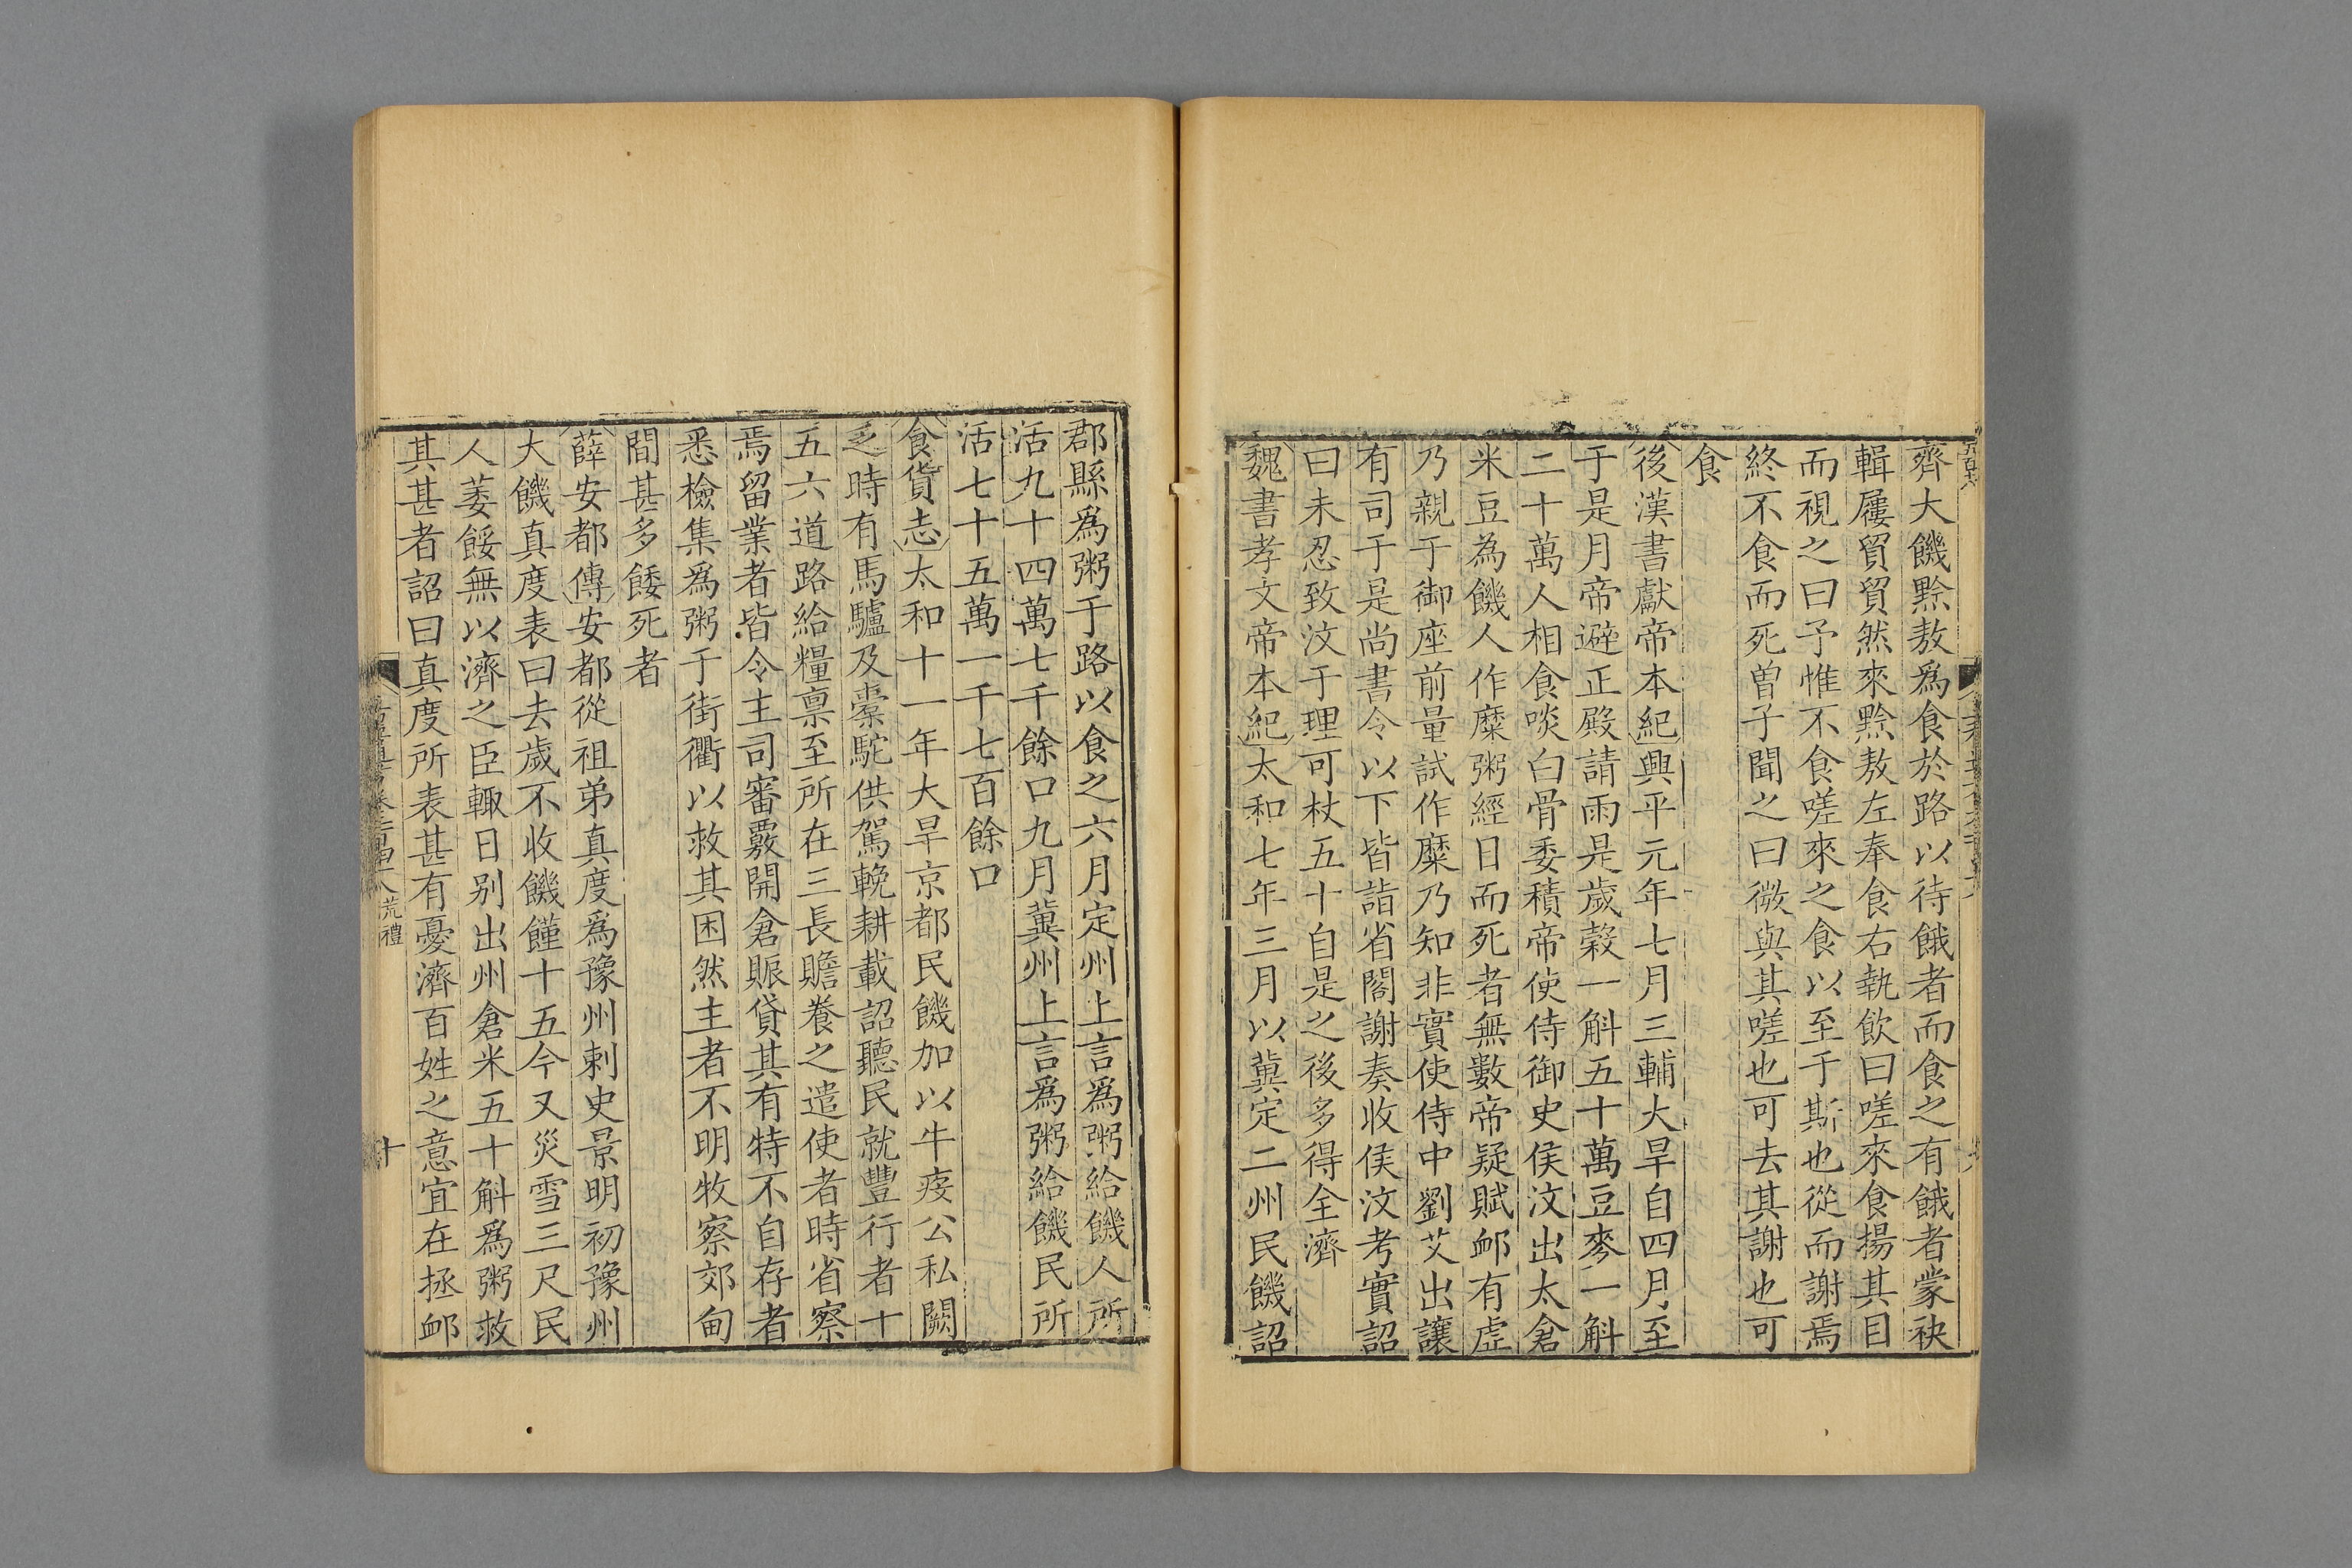 齊大饑黔敖爲食於路以待餓者而食之有餓者蒙袂
輯屨貿貿然來黔敖左奉食右執飲曰嗟來食揚其目
而視之曰予惟不食嗟來之食以至于斯也從而謝焉
終不食而死曾子聞之曰微與其嗟也可去其謝也可
食
後漢書獻帝本紀興平元年七月三輔大旱自四月至
于是月帝避正殿請雨是歲穀一斛五十萬豆麥一斛
二十萬人相食啖白骨委積帝使侍御史侯汶出太倉
米豆為饑人作糜粥經日而死者無數帝疑賦卹有虛
乃親于御座前量試作糜乃知非實使侍中劉艾出讓
有司于是尚書令以下皆詣省閣謝奏收侯汶考實詔
曰未忍致汶于理可杖五十自是之後多得全濟
魏書孝文帝本紀太和七年三月以冀定二州民饑詔
郡縣爲粥于路以食之六月定州上言爲粥給饑人所
活九十四萬七千餘口九月冀州上言爲粥給饑民所
活七十五萬一千七百餘口
食貨志太和十一年大旱京都民饑加以牛疫公私闕
乏時有馬驢及橐駝供駕輓耕載詔聽民就豐行者十
五六道路給糧禀至所在三長贍養之遣使者時省察
焉留業者皆令主司審覈開倉賑貸其有特不自存者
悉檢集爲粥于街衢以救其困然主者不明牧察郊甸
間甚多餧死者
薛安都傳安都從祖弟真度爲豫州剌史景明初豫州
大饑真度表曰去歲不收饑饉十五今又災雪三尺民
人萎餒無以濟之臣輙日别出州倉米五十斛爲粥救
其甚者詔曰真度所表甚有憂濟百姓之意宜在拯卹
荒禮
十